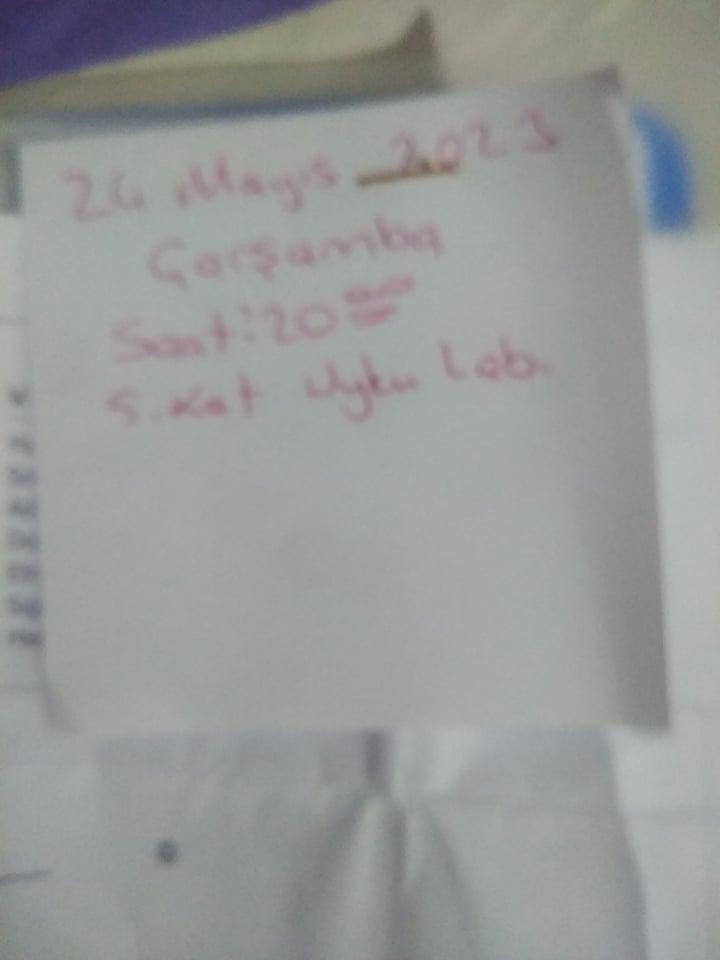 24 Mayıs 2023
Çarşamba
Saat: 20⁰⁰
5. Kat Uyku Lab.